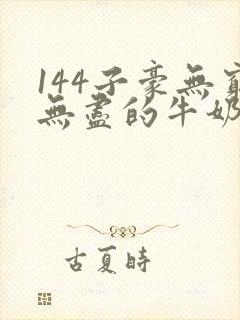 144子豪無窮
無盡的牛奶
古夏時